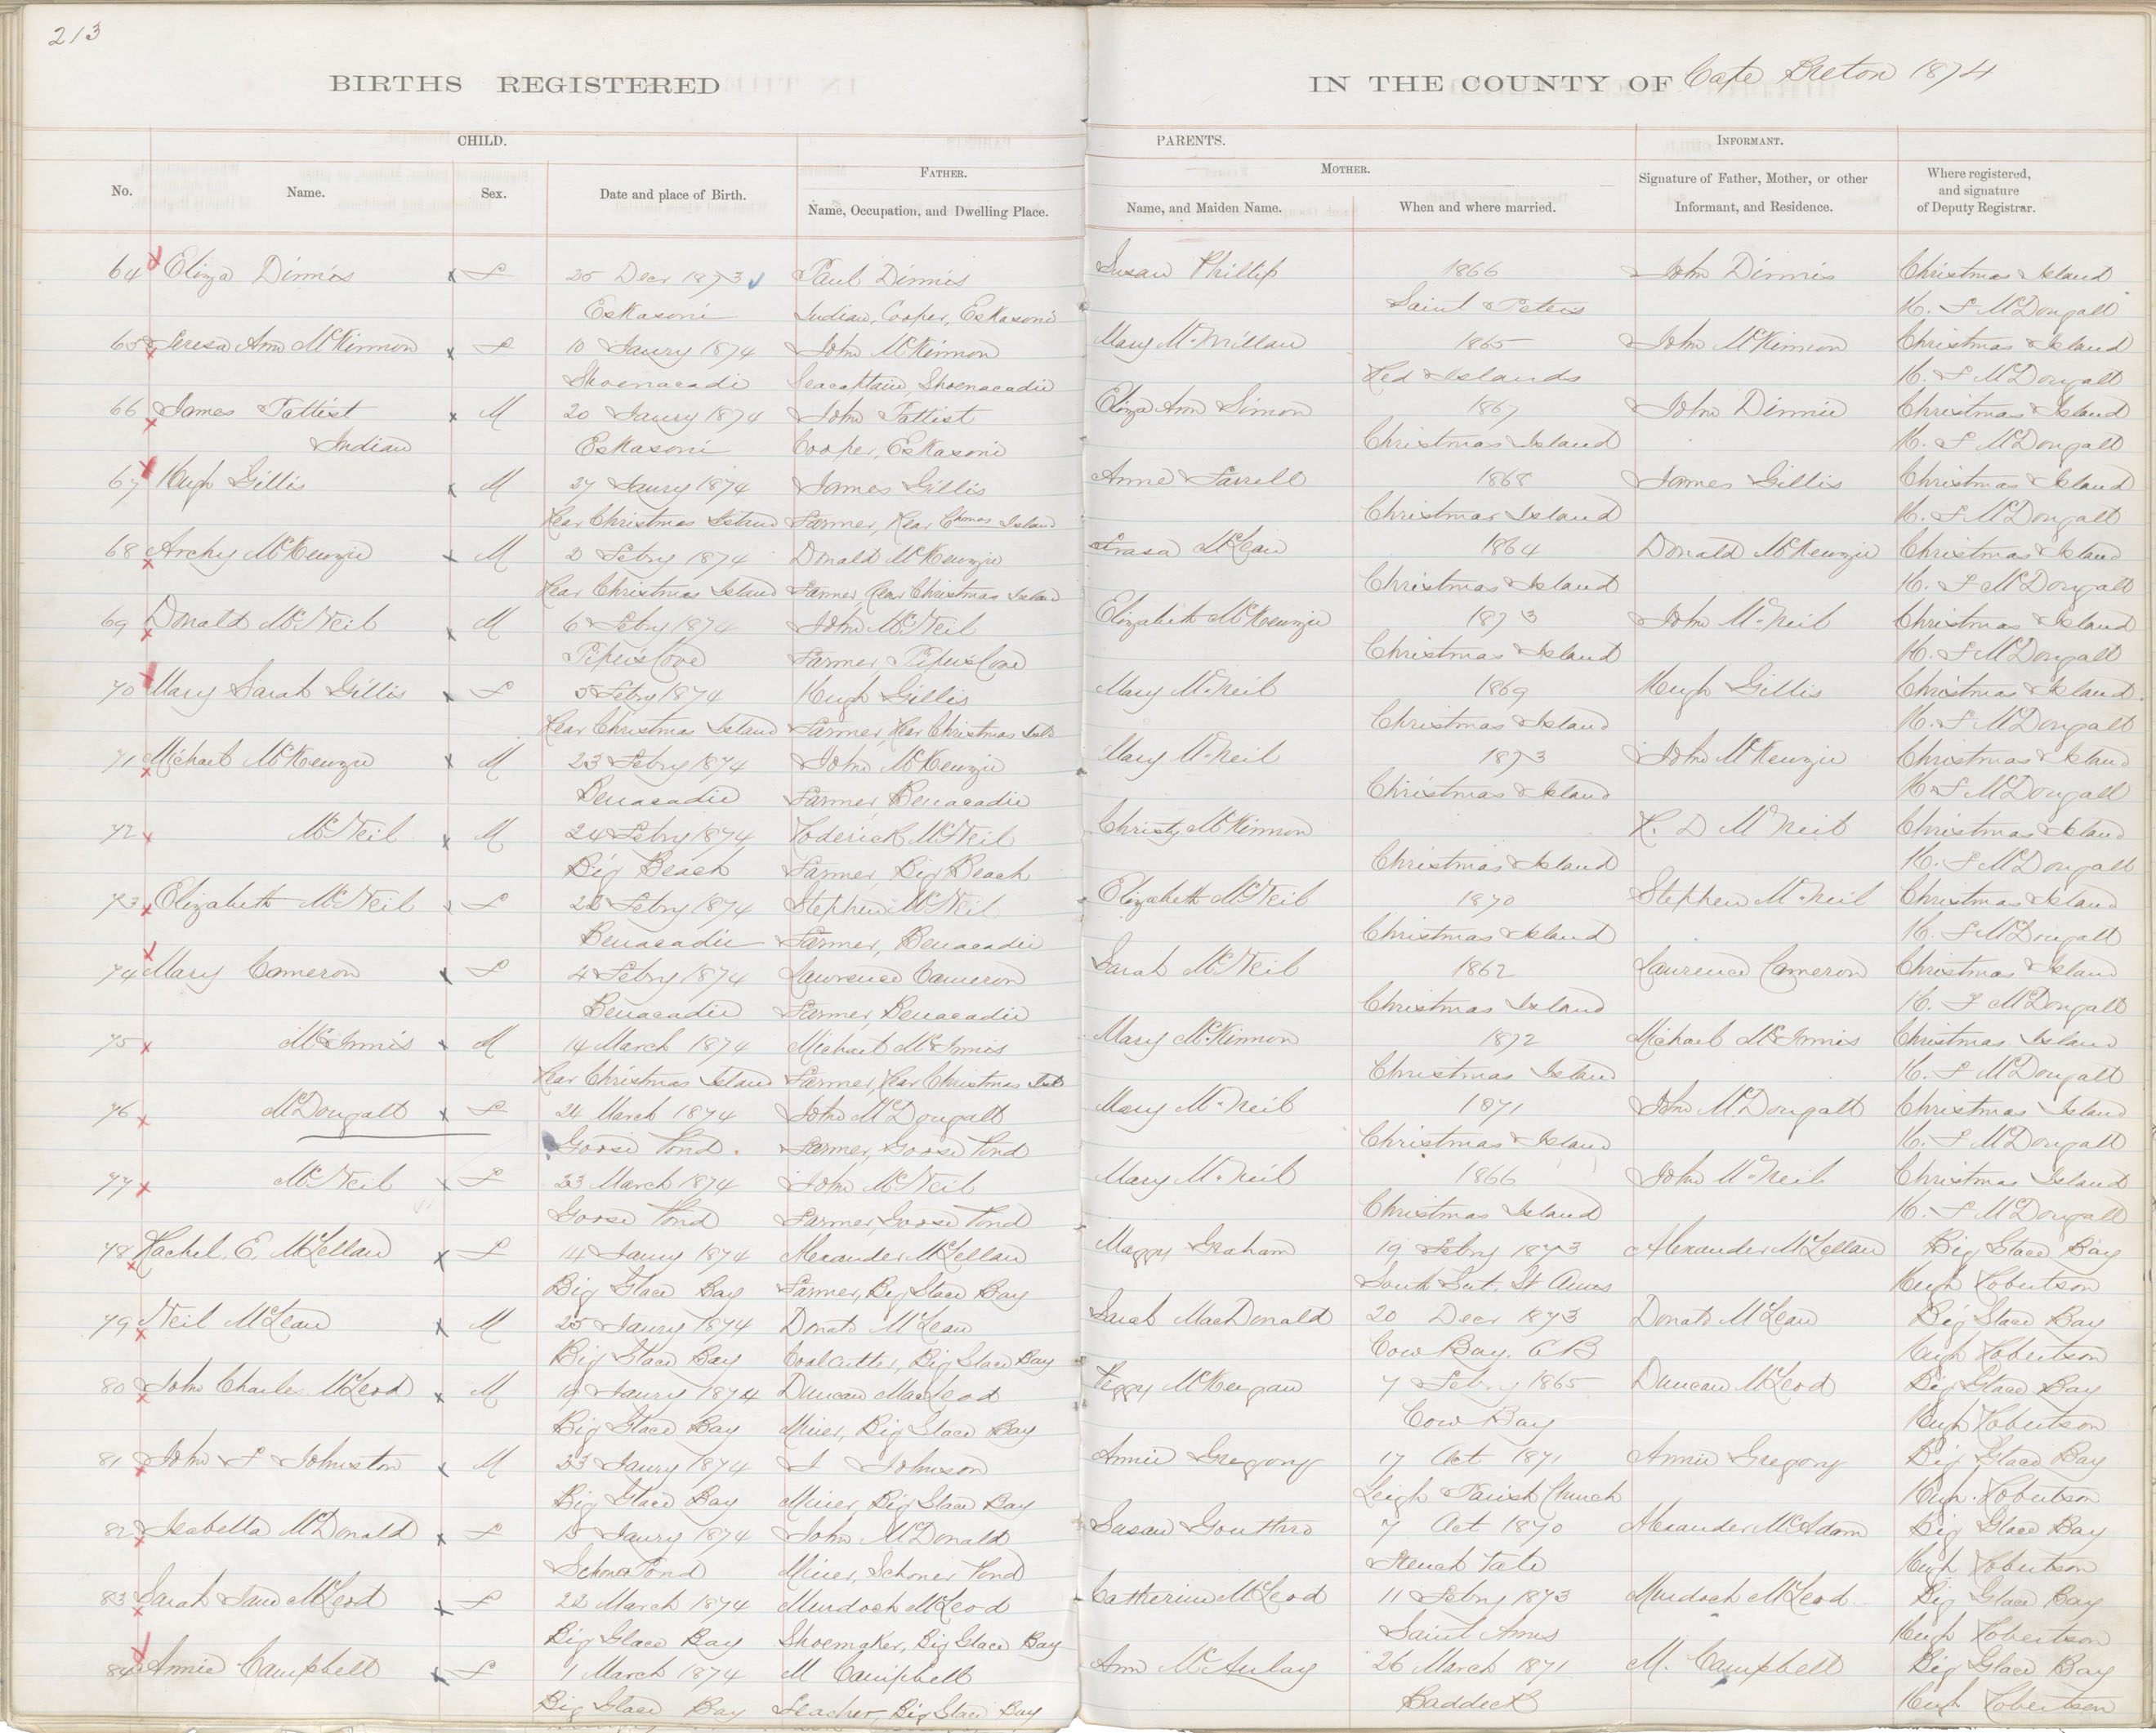 213
BIRTHS REGISTERED IN THE COUNTY OF Cape Breton 1874
CHILD. PARENTS. INFORMANT.
No. Name. Sex. Date and place of Birth. FATHER. Name, Occupation, and Dwelling Place. MOTHER. Name, and Maiden Name. When and where married. Signature of Father, Mother, or other Informant, and Residence. Where registered, and signature of Deputy Registrar.
64 Eliza Dinnis F 25 Decr 1873 Paul Dinnis Susan Phillip 1866 John Dinnis Christmas Island
Eskasoni Indian, Cooper, Eskasoni Saint Peters H. F McDougall
65 Teresa Ann McKinnon F 10 Jaury 1874 John McKinnon Mary McMillan 1865 John McKinnon Christmas Island
Shoenacadie Seacaptain, Shoenacadie Red Islands H. F McDougall
66 James Pattist M 20 Jaury 1874 John Pattist Eliza Ann Simon 1867 John Dinnie Christmas Island
Indian Eskasoni Cooper, Eskasoni Christmas Island H. F McDougall
67 Hugh Gillis M 27 Jaury 1874 James Gillis Anne Farrell 1868 James Gillis Christmas Island
Rear Christmas Island Farmer, Rear Chrmas Island Christmas Island H. F McDougall
68 Archy McKenzie M 2 Febry 1874 Donald McKenzie McLean 1864 Donald McKenzie Christmas Island
Rear Christmas Island Farmer Rear Christmas Island Christmas Island H. F McDougall
69 Donald McNeil M 6 Febry 1874 John McNeil Elizabeth McKenzie 1873 John McNeil Christmas Island
Piper's Cove Farmer Piper's Cove Christmas Island H. F McDougall
70 Mary Sarah Gillis F 5 Febry 1874 Hugh Gillis Mary McNeil 1869 Hugh Gillis Christmas Island
Rear Christmas Island Farmer, Rear Christmas Isld Christmas Island H. F McDougall
71 Michael McKenzie M 23 Febry 1874 John McKenzie Mary McNeil 1873 John McKenzie Christmas Island
Benacadie Farmer, Benacadie Christmas Island H. F McDougall
72 McNeil M 24 Febry 1874 Roderick McNeil Christy McKinnon R. D McNeil Christmas Island
Big Beach Farmer, Big Beach Christmas Island H. F McDougall
73 Elizabeth McNeil F 22 Febry 1874 Stephen McNeil Elizabeth McNeil 1870 Stephen McNeil Christmas Island
Benacadie Farmer, Benacadie Christmas Island H. F McDougall
74 Mary Cameron F 4 Febry 1874 Lawrence Cameron Sarah McNeil 1862 Laurence Cameron Christmas Island
Benacadie Farmer, Benacadie Christmas Island H. F McDougall
75 McInnis M 14 March 1874 Michael McInnis Mary McKinnon 1872 Michael McInnis Christmas Island
Rear Christmas Island Farmer, Rear Christmas Isld Christmas Island H. F McDougall
76 McDougall F 24 March 1874 John McDougall Mary McNeil 1871 John McDougall Christmas Island
Goose Pond. Farmer, Goose Pond Christmas Island H. F McDougall
77 McNeil F 23 March 1874 John McNeil Mary McNeil 1866 John McNeil Christmas Island
Goose Pond Farmer, Goose Pond Christmas Island H. F McDougall
78 Rachel. E. McLellan F 14 Jaury 1874 Alexander McLellan Maggy Graham 19 Febry 1873 Alexander McLellan Big Glace Bay
Big Glace Bay Farmer, Big Glace Bay South Gut. St Anns Hugh Robertson
79 Neil McLean M 25 Jaury 1874 Donald McLean Sarah MacDonald 20 Decr 1873 Donald McLean Big Glace Bay
Big Glace Bay Coalcutter, Big Glace Bay Cow Bay. C B Hugh Robertson
80 John Charles McLeod M 19 Jaury 1874 Duncan MacLeod Peggy McKeigan 7 Febry 1865 Duncan McLeod Big Glace Bay
Big Glace Bay Miner, Big Glace Bay Cow Bay Hugh Robertson
81 John F Johnston M 23 Jaury 1874 J Johnson Annie Gregory 17 Oct 1871 Annie Gregory Big Glace Bay
Big Glace Bay Miner, Big Glace Bay Leigh Parish Church Hugh Robertson
82 Isabella McDonald F 15 Jaury 1874 John McDonald Susan Gouthro 7 Oct 1870 Alexander McAdam Big Glace Bay
Schoner Pond Miner, Schoner Pond French Vale Hugh Robertson
83 Sarah Jane McLeod F 22 March 1874 Murdoch McLeod Catherine McLeod 11 Febry 1873 Murdoch McLeod Big Glace Bay
Big Glace Bay Shoemaker, Big Glace Bay Saint Anns Hugh Robertson
84 Annie Campbell F 1 March 1874 M Campbell Ann McAulay 26 March 1871 M. Campbell Big Glace Bay
Big Glace Bay Teacher, Big Glace Bay Baddeck Hugh Robertson